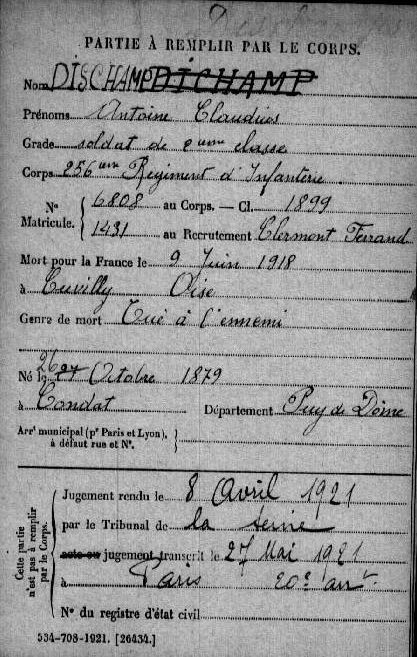 PARTIE À REMPLIR PAR LE CORPS.
Nom DISCHAMP DICHAMP
Prénoms Antoine Claudius
Grade soldat de 2eme classe
Corps 256eme Régiment d'Infanterie
N° Matricule. 6808 au Corps. — Cl. 1899
1431 au Recrutement Clermont Ferrand
Mort pour la France le 9 Juin 1918
à Cuvilly Oise
Genre de mort Tué à l'ennemi
Né le 26 27 Octobre 1879
à Condat Département Puy de Dôme
Arrt municipal (pr Paris et Lyon), à défaut rue et N°.
Cette partie n'est pas à remplir par le Corps.
Jugement rendu le 8 Avril 1921
par le Tribunal de la Seine
acte ou jugement transcrit le 27 Mai 1921
à Paris 20e arrt
N° du registre d'état civil
534-708-1921. [26434.]